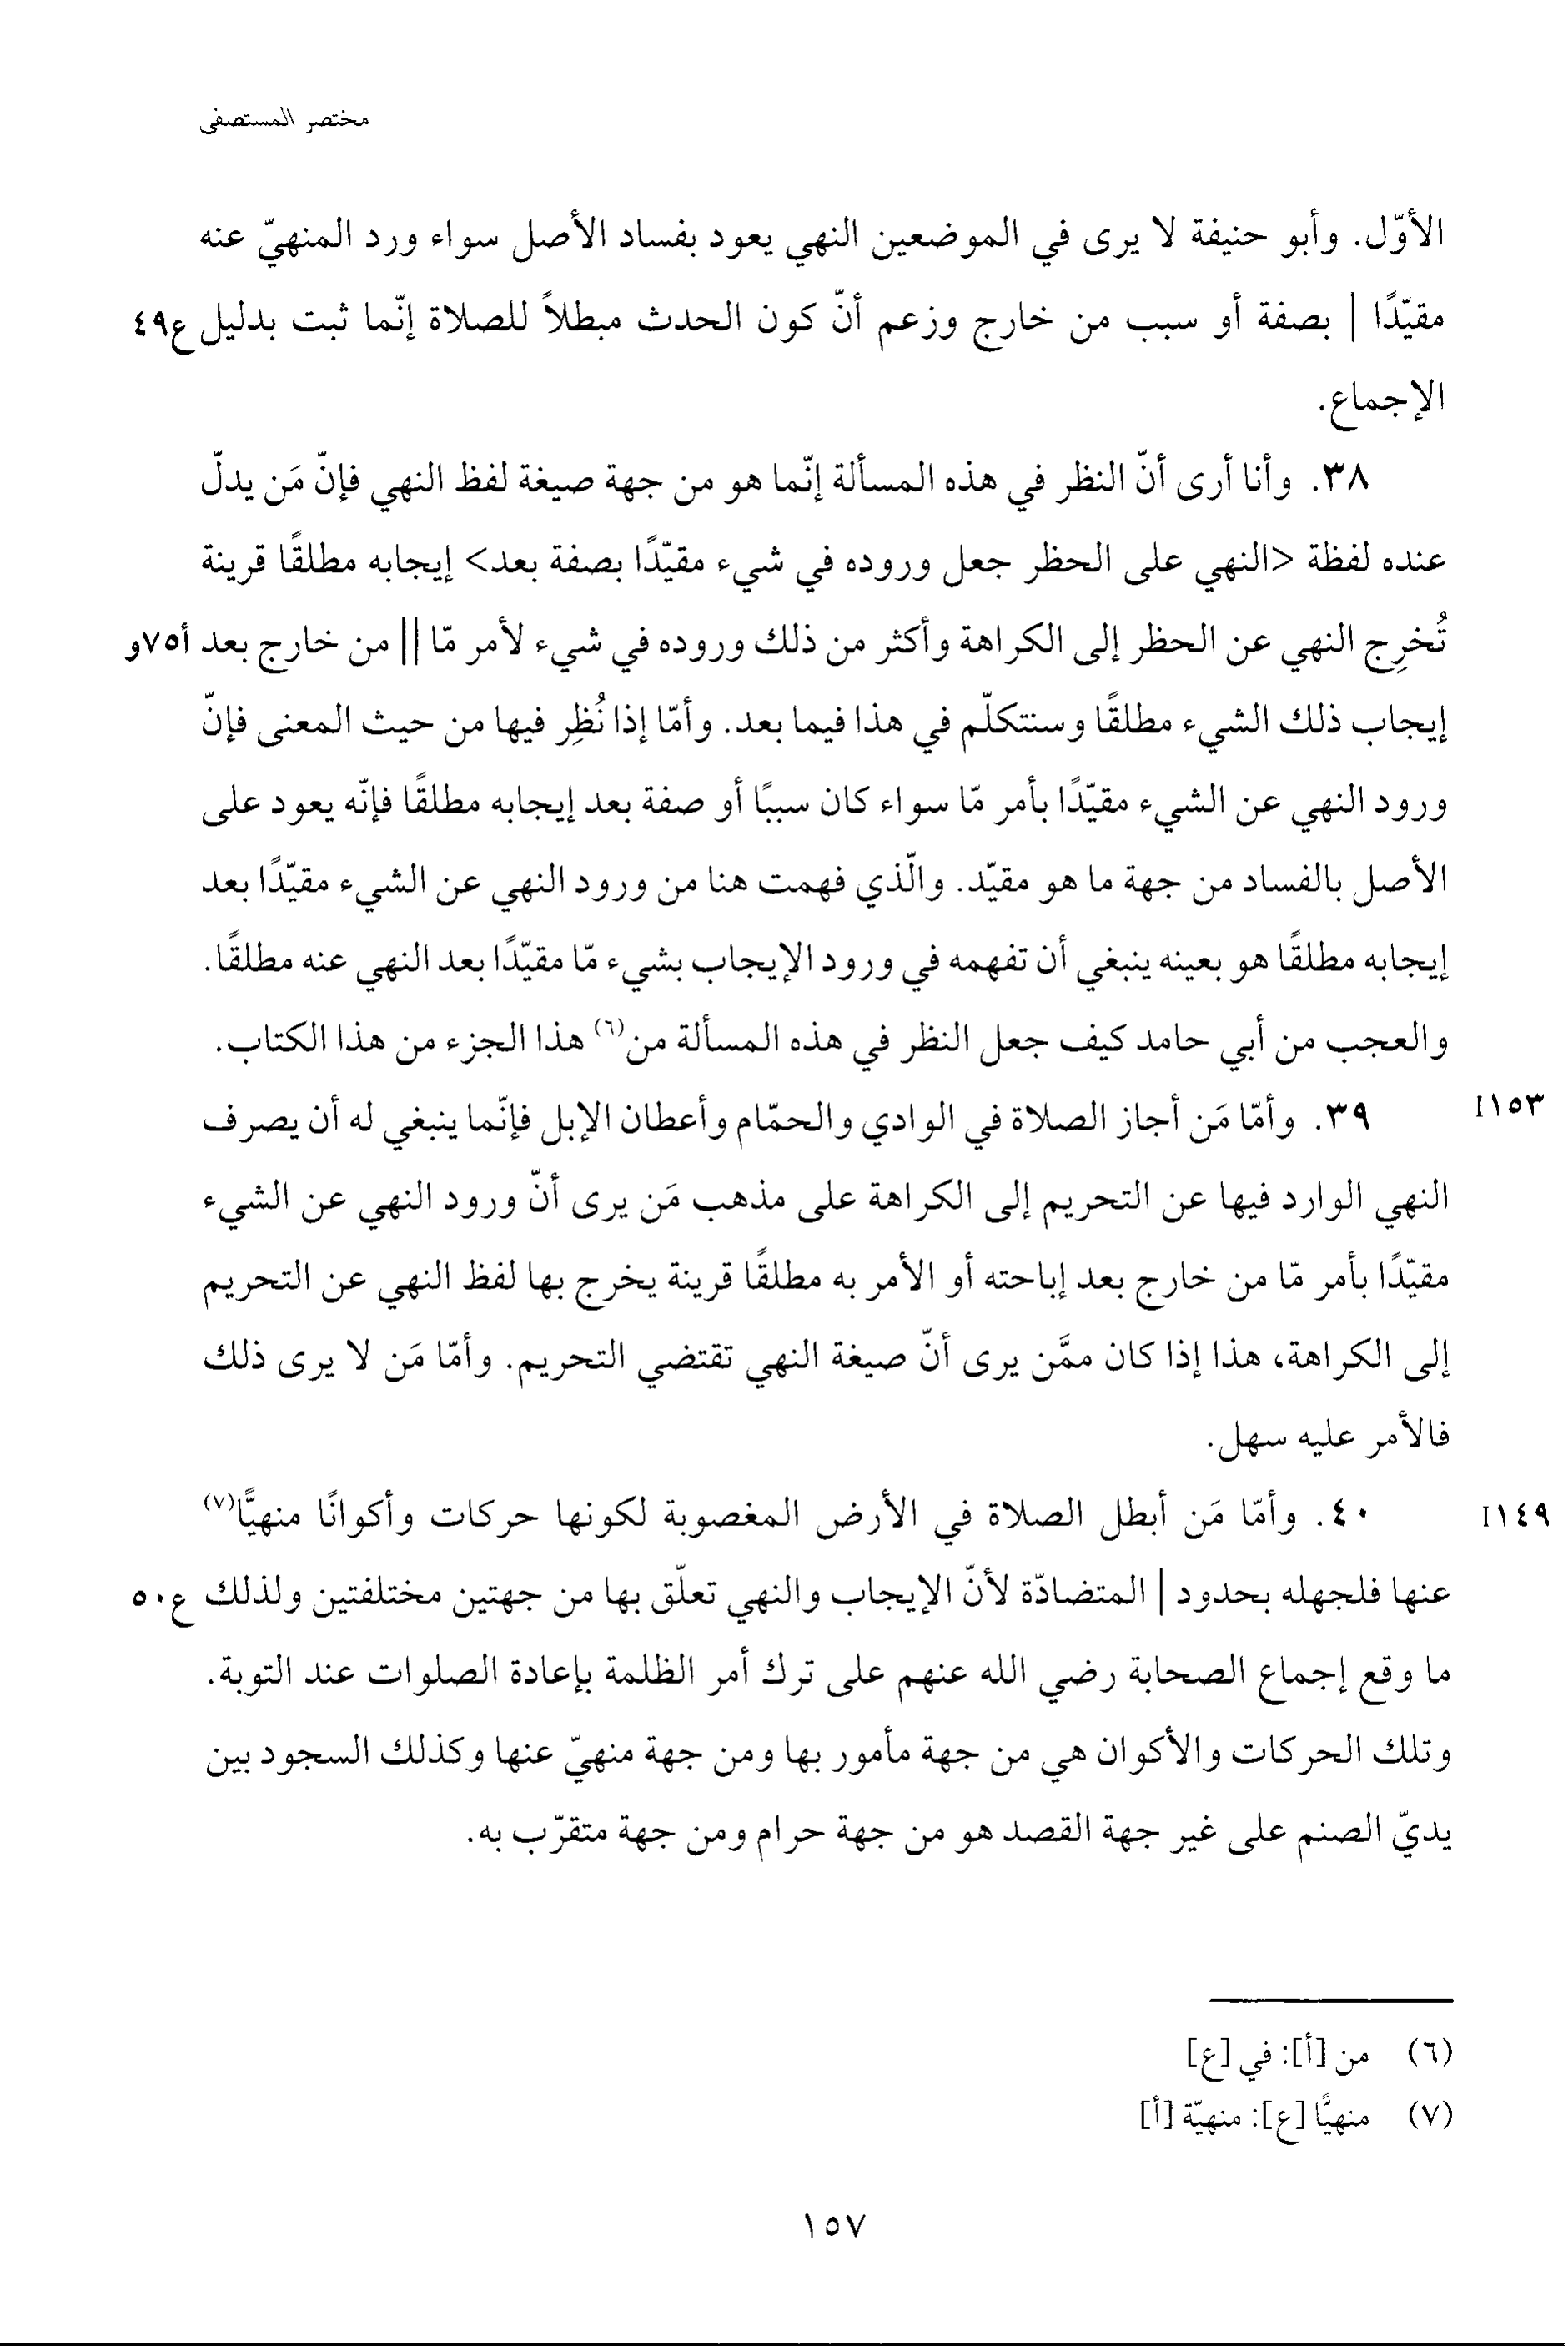 مختصر المستصفى
الأوّل. وأبو حنيفة لا يرى في الموضعين النهي يعود بفساد الأصل سواء ورد المنهيّ عنه
مقيّدًا | بصفة أو سبب من خارج وزعم أنّ كون الحدث مبطلاً للصلاة إنّما ثبت بدليل ع٤٩
الإجماع.
٣٨. وأنا أرى أنّ النظر في هذه المسألة إنّما هو من جهة صيغة لفظ النهي فإنّ مَن يدلّ
عنده لفظة <النهي على الحظر جعل وروده في شيء مقيّدًا بصفة بعد> إيجابه مطلقًا قرينة
تُخرِج النهي عن الحظر إلى الكراهة وأكثر من ذلك وروده في شيء لأمر مّا || من خارج بعد أ٧٥و
إيجاب ذلك الشيء مطلقًا وسنتكلّم في هذا فيما بعد. وأمّا إذا نُظِر فيها من حيث المعنى فإنّ
ورود النهي عن الشيء مقيّدًا بأمر مّا سواء كان سببًا أو صفة بعد إيجابه مطلقًا فإنّه يعود على
الأصل بالفساد من جهة ما هو مقيّد. والّذي فهمت هنا من ورود النهي عن الشيء مقيّدًا بعد
إيجابه مطلقًا هو بعينه ينبغي أن تفهمه في ورود الإيجاب بشيء مّا مقيّدًا بعد النهي عنه مطلقًا.
والعجب من أبي حامد كيف جعل النظر في هذه المسألة من(٦) هذا الجزء من هذا الكتاب.
٣٩. وأمّا مَن أجاز الصلاة في الوادي والحمّام وأعطان الإبل فإنّما ينبغي له أن يصرف I١٥٣
النهي الوارد فيها عن التحريم إلى الكراهة على مذهب مَن يرى أنّ ورود النهي عن الشيء
مقيّدًا بأمر مّا من خارج بعد إباحته أو الأمر به مطلقًا قرينة يخرج بها لفظ النهي عن التحريم
إلى الكراهة، هذا إذا كان ممَّن يرى أنّ صيغة النهي تقتضي التحريم. وأمّا مَن لا يرى ذلك
فالأمر عليه سهل.
٤٠. وأمّا مَن أبطل الصلاة في الأرض المغصوبة لكونها حركات وأكوانًا منهيًّا(٧) I١٤٩
عنها فلجهله بحدود | المتضادّة لأنّ الإيجاب والنهي تعلّق بها من جهتين مختلفتين ولذلك ع٥٠
ما وقع إجماع الصحابة رضي الله عنهم على ترك أمر الظلمة بإعادة الصلوات عند التوبة.
وتلك الحركات والأكوان هي من جهة مأمور بها ومن جهة منهيّ عنها وكذلك السجود بين
يديّ الصنم على غير جهة القصد هو من جهة حرام ومن جهة متقرّب به.
(٦) من [أ]: في [ع]
(٧) منهيًّا [ع]: منهيّة [أ]
١٥٧